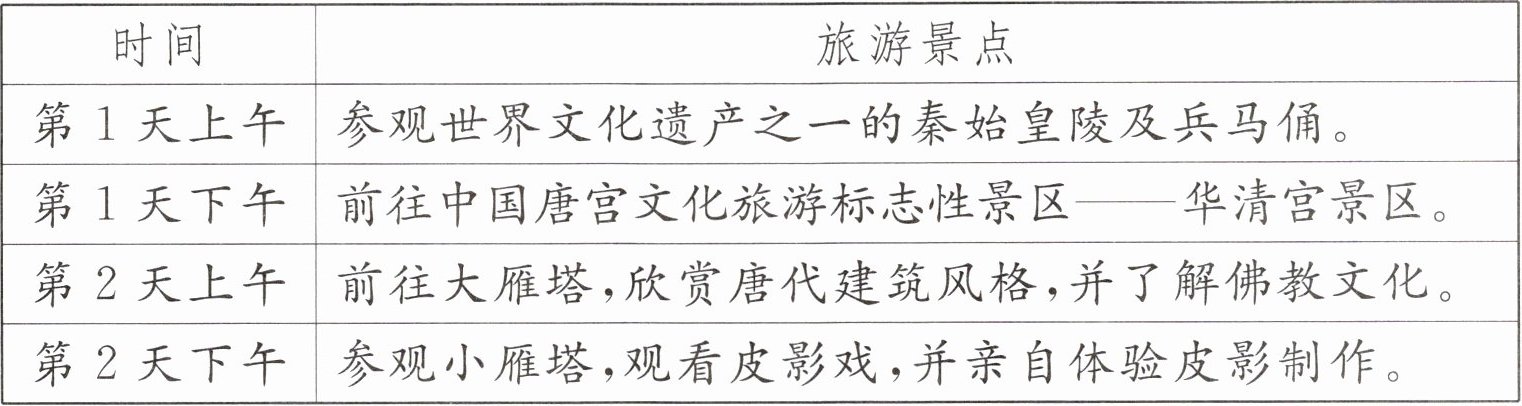 时间 旅游景点
第1天上午 参观世界文化遗产之一的秦始皇陵及兵马俑。
第1天下午 前往中国唐宫文化旅游标志性景区——华清宫景区。
第2天上午 前往大雁塔,欣赏唐代建筑风格,并了解佛教文化。
第2天下午 参观小雁塔,观看皮影戏,并亲自体验皮影制作。